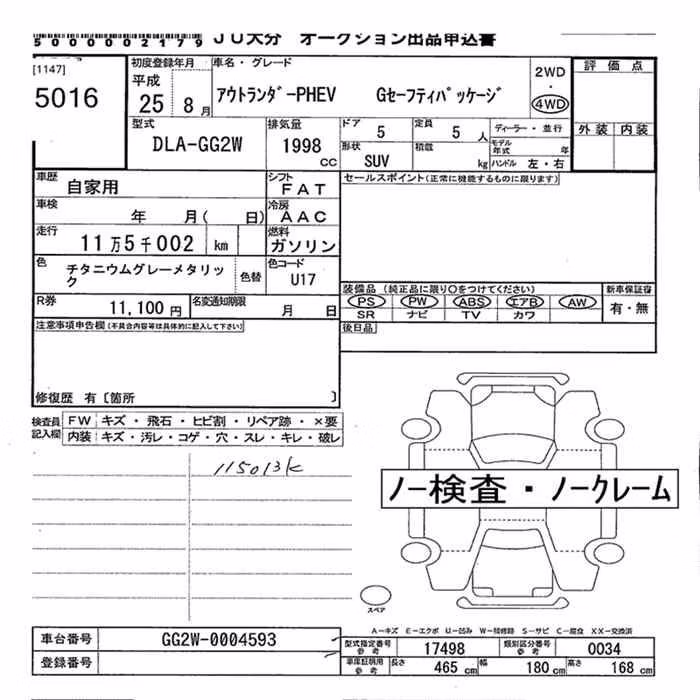 5000002179 JU大分 オークション出品申込書
[1147] 5016
初度登録年月 平成 25 8月
車名・グレード アウトランダーPHEV Gセーフティパッケージ
2WD ・ 4WD
評価点
外装 内装
型式 DLA-GG2W
排気量 1998 cc
ドア 5 定員 5 人
形状 SUV 積載 kg
ディーラー・並行
モデル年式 年
ハンドル 左・右
車歴 自家用
シフト FAT
セールスポイント(正常に機能するものに限ります)
車検 年 月( 日)
冷房 AAC
走行 11万5千002 km
燃料 ガソリン
色 チタニウムグレーメタリック 色替
色コード U17
装備品 (純正品に限り○をつけてください) 新車保証書
PS PW ABS エアB AW 有・無
SR ナビ TV カワ
R券 11,100円
名変通知期限 月 日
後日品
注意事項申告欄(不具合内容等は具体的に記入して下さい)
修復歴 有〔箇所 〕
検査員記入欄
FW キズ・飛石・ヒビ割・リペア跡・×要
内装 キズ・汚レ・コゲ・穴・スレ・キレ・破レ
115013k
ノー検査・ノークレーム
スペア
A-キズ E-エクボ U-凹み W-補修跡 S-サビ C-腐食 XX-交換済
車台番号 GG2W-0004593
登録番号
型式指定番号 参考 17498 類別区分番号 参考 0034
車庫証明用 参考 長さ 465 cm 幅 180 cm 高さ 168 cm